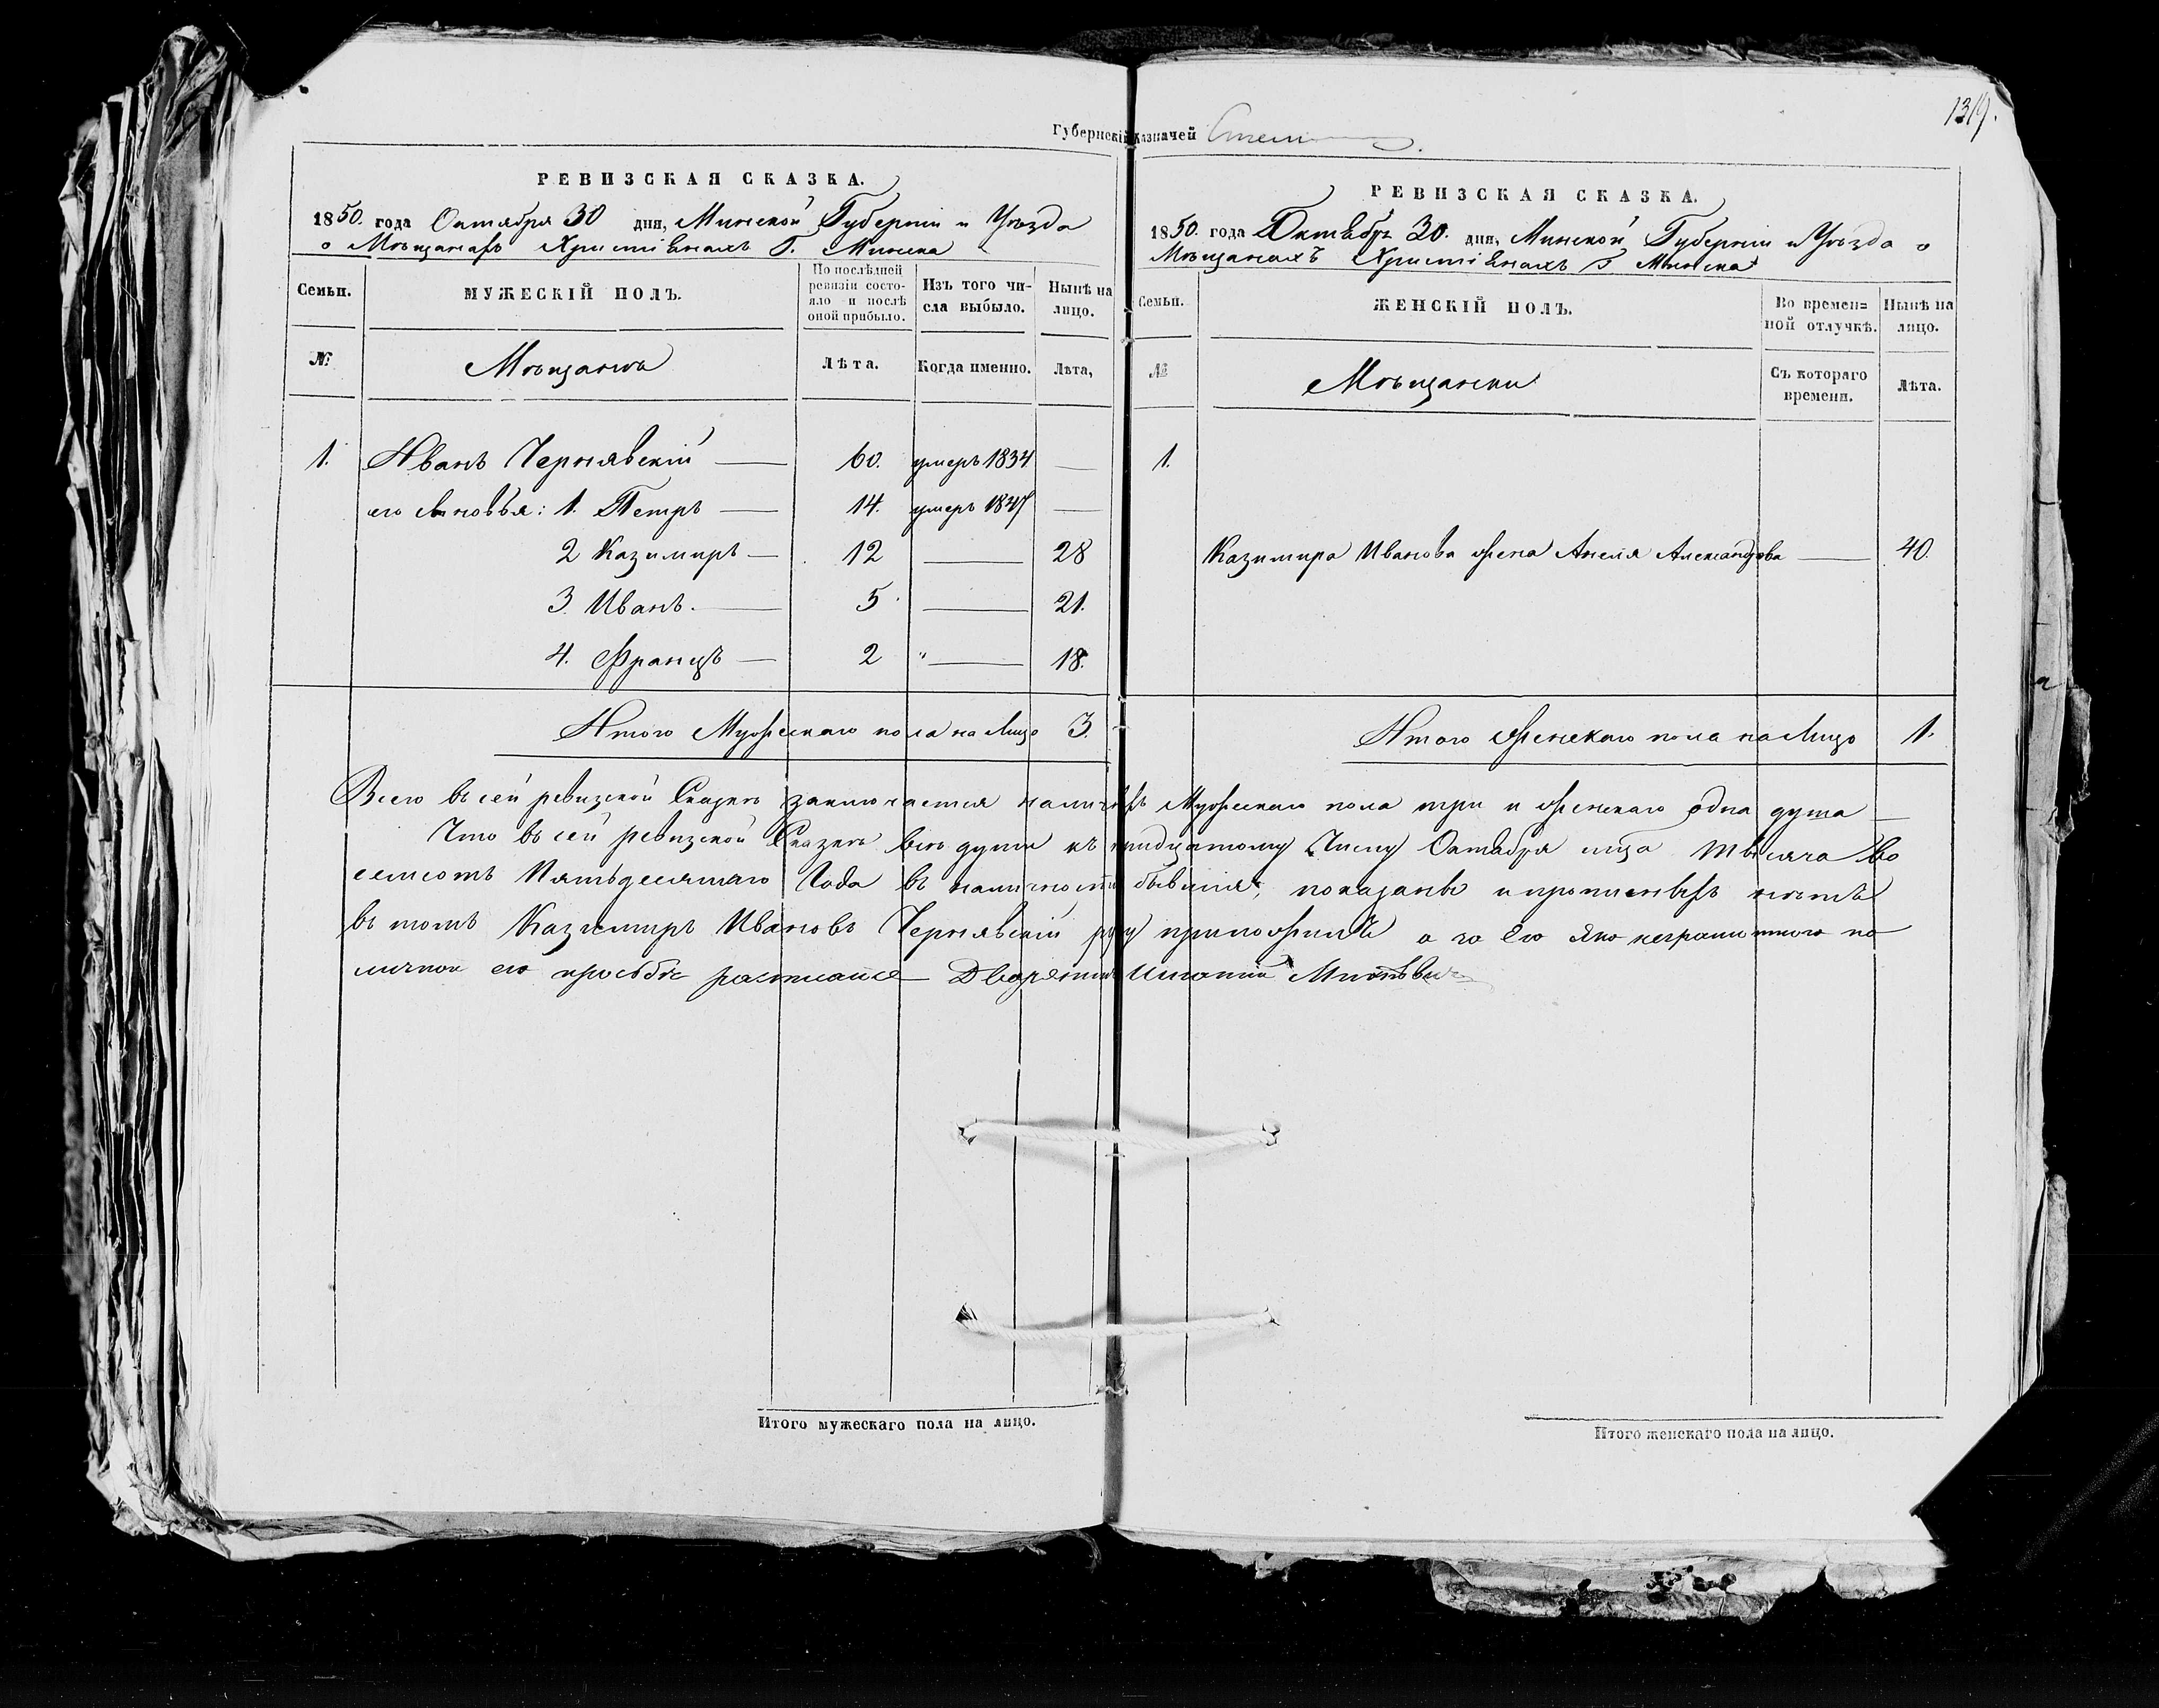 1319.
Губернскій Казначей
РЕВИЗСКАЯ СКАЗКА.
1850. года Октября 30 дня, Минской Губерніи и Уѣзда
о Мѣщанахъ Христіянахъ Г. Минска
Семьи.
МУЖЕСКІЙ ПОЛЪ.
По послѣдней
ревизіи состо-
яло и послѣ
оной прибыло.
Изъ того чи-
сла выбыло.
Нынѣ на
лицо.
№
Мѣщанъ
Лѣта.
Когда именно.
Лѣта,
1. Иванъ Чернявскій — 60. умеръ 1834 —
его сыновья: 1. Петръ — 14. умеръ 1847 —
2 Казимиръ — 12 — 28
3. Иванъ. — 5 — 21.
4. Францъ — 2 " — 18.
Итого Мужескаго пола на Лицо 3.
РЕВИЗСКАЯ СКАЗКА.
1850. года Октября 30. дня, Минской Губерніи и Уѣзда о
Мѣщанахъ Христіянахъ Г. Минска
Семьи.
ЖЕНСКІЙ ПОЛЪ.
Во времен=
ной отлучкѣ.
Нынѣ на
лицо.
№
Мѣщанки
Съ котораго
времени.
Лѣта.
1.
Казимира Иванова жена Анеля Александрова — 40.
Итого Женскаго пола на Лицо 1.
Всего въ сей ревизской Сказкѣ заключается наличныхъ Мужескаго пола три и женскаго одна душа —
Что въ сей ревизской Сказкѣ всѣ души къ тридцатому Числу Октября мца тысяча во
семсотъ Пятьдесятаго Года въ наличности бывшія, показаны и прописныхъ нѣтъ
въ томъ Казимиръ Ивановъ Чернявскій руку приложилъ а за Его яко неграмотного по
личной его просьбѣ росписался Дворянинъ
Итого мужескаго пола на лицо.
Итого женскаго пола на лицо.